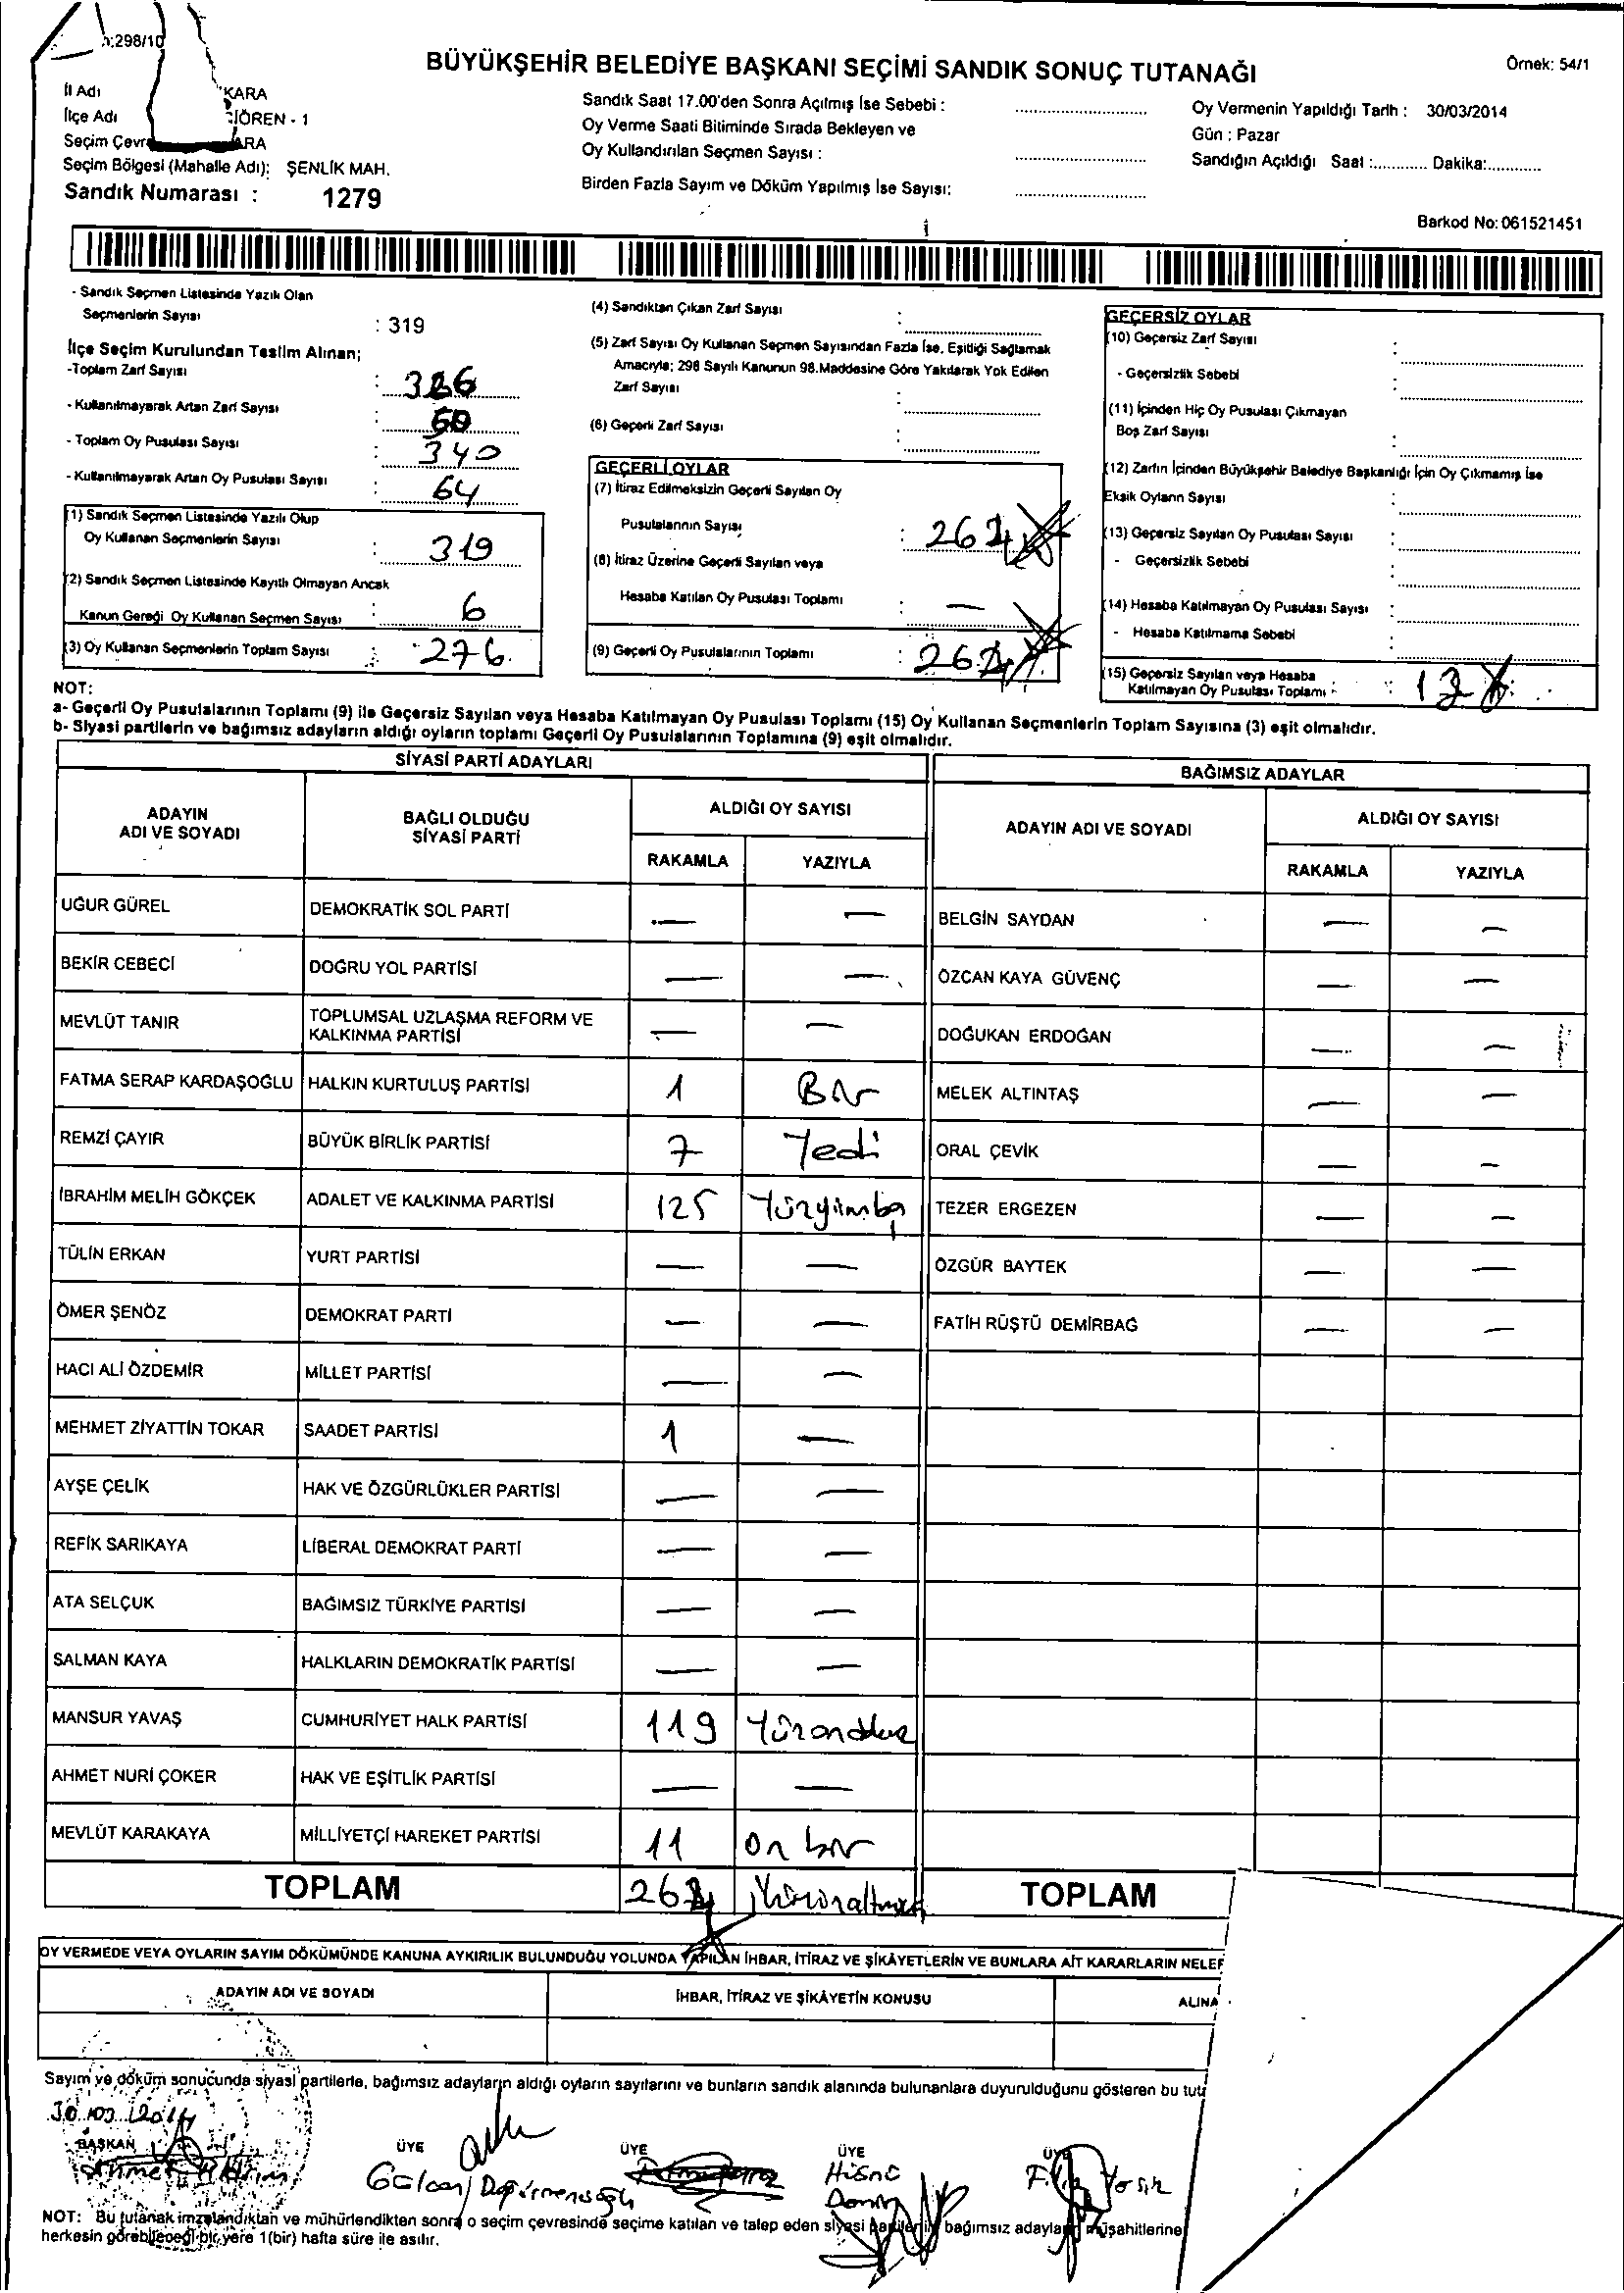 :298/10
BÜYÜKŞEHİR BELEDİYE BAŞKANI SEÇİMİ SANDIK SONUÇ TUTANAĞI
Örnek: 54/1
İl Adı KARA
İlçe Adı ÖREN - 1
Seçim Çevr ARA
Seçim Bölgesi (Mahalle Adı): ŞENLİK MAH.
Sandık Numarası : 1279
Sandık Saat 17.00'den Sonra Açılmış İse Sebebi :
Oy Verme Saati Bitiminde Sırada Bekleyen ve
Oy Kullandırılan Seçmen Sayısı :
Birden Fazla Sayım ve Döküm Yapılmış İse Sayısı:
Oy Vermenin Yapıldığı Tarih : 30/03/2014
Gün : Pazar
Sandığın Açıldığı Saat :............ Dakika:............
Barkod No: 061521451
- Sandık Seçmen Listesinde Yazılı Olan
Seçmenlerin Sayısı : 319
İlçe Seçim Kurulundan Teslim Alınan;
-Toplam Zarf Sayısı :
- Kullanılmayarak Artan Zarf Sayısı :
- Toplam Oy Pusulası Sayısı : 340
- Kullanılmayarak Artan Oy Pusulası Sayısı : 64
(1) Sandık Seçmen Listesinde Yazılı Olup
Oy Kullanan Seçmenlerin Sayısı : 319
(2) Sandık Seçmen Listesinde Kayıtlı Olmayan Ancak
Kanun Gereği Oy Kullanan Seçmen Sayısı : 6
(3) Oy Kullanan Seçmenlerin Toplam Sayısı : 276
(4) Sandıktan Çıkan Zarf Sayısı :
(5) Zarf Sayısı Oy Kullanan Seçmen Sayısından Fazla İse, Eşitliği Sağlamak
Amacıyla; 298 Sayılı Kanunun 98.Maddesine Göre Yakılarak Yok Edilen
Zarf Sayısı :
(6) Geçerli Zarf Sayısı :
GEÇERLİ OYLAR
(7) İtiraz Edilmeksizin Geçerli Sayılan Oy
Pusulalarının Sayısı :
(8) İtiraz Üzerine Geçerli Sayılan veya
Hesaba Katılan Oy Pusulası Toplamı : —
(9) Geçerli Oy Pusulalarının Toplamı :
GEÇERSİZ OYLAR
(10) Geçersiz Zarf Sayısı :
- Geçersizlik Sebebi :
(11) İçinden Hiç Oy Pusulası Çıkmayan
Boş Zarf Sayısı :
(12) Zarfın İçinden Büyükşehir Belediye Başkanlığı İçin Oy Çıkmamış İse
Eksik Oyların Sayısı :
(13) Geçersiz Sayılan Oy Pusulası Sayısı :
- Geçersizlik Sebebi :
(14) Hesaba Katılmayan Oy Pusulası Sayısı :
- Hesaba Katılmama Sebebi :
(15) Geçersiz Sayılan veya Hesaba
Katılmayan Oy Pusulası Toplamı :
NOT:
a- Geçerli Oy Pusulalarının Toplamı (9) ile Geçersiz Sayılan veya Hesaba Katılmayan Oy Pusulası Toplamı (15) Oy Kullanan Seçmenlerin Toplam Sayısına (3) eşit olmalıdır.
b- Siyasi partilerin ve bağımsız adayların aldığı oyların toplamı Geçerli Oy Pusulalarının Toplamına (9) eşit olmalıdır.
SİYASİ PARTİ ADAYLARI
ADAYIN ADI VE SOYADI
BAĞLI OLDUĞU SİYASİ PARTİ
ALDIĞI OY SAYISI
RAKAMLA YAZIYLA
UĞUR GÜREL DEMOKRATİK SOL PARTİ — —
BEKİR CEBECİ DOĞRU YOL PARTİSİ — —
MEVLÜT TANIR TOPLUMSAL UZLAŞMA REFORM VE KALKINMA PARTİSİ — —
FATMA SERAP KARDAŞOĞLU HALKIN KURTULUŞ PARTİSİ 1 Bir
REMZİ ÇAYIR BÜYÜK BİRLİK PARTİSİ 7 Yedi
İBRAHİM MELİH GÖKÇEK ADALET VE KALKINMA PARTİSİ 125 Yüzyirmibş
TÜLİN ERKAN YURT PARTİSİ — —
ÖMER ŞENÖZ DEMOKRAT PARTİ — —
HACI ALİ ÖZDEMİR MİLLET PARTİSİ — —
MEHMET ZİYATTİN TOKAR SAADET PARTİSİ 1 —
AYŞE ÇELİK HAK VE ÖZGÜRLÜKLER PARTİSİ — —
REFİK SARIKAYA LİBERAL DEMOKRAT PARTİ — —
ATA SELÇUK BAĞIMSIZ TÜRKİYE PARTİSİ — —
SALMAN KAYA HALKLARIN DEMOKRATİK PARTİSİ — —
MANSUR YAVAŞ CUMHURİYET HALK PARTİSİ 119
AHMET NURİ ÇOKER HAK VE EŞİTLİK PARTİSİ — —
MEVLÜT KARAKAYA MİLLİYETÇİ HAREKET PARTİSİ 11 on bir
TOPLAM
BAĞIMSIZ ADAYLAR
ADAYIN ADI VE SOYADI
ALDIĞI OY SAYISI
RAKAMLA YAZIYLA
BELGİN SAYDAN — —
ÖZCAN KAYA GÜVENÇ — —
DOĞUKAN ERDOĞAN — —
MELEK ALTINTAŞ — —
ORAL ÇEVİK — —
TEZER ERGEZEN — —
ÖZGÜR BAYTEK — —
FATİH RÜŞTÜ DEMİRBAĞ — —
TOPLAM
OY VERMEDE VEYA OYLARIN SAYIM DÖKÜMÜNDE KANUNA AYKIRILIK BULUNDUĞU YOLUNDA YAPILAN İHBAR, İTİRAZ VE ŞİKÂYETLERİN VE BUNLARA AİT KARARLARIN NELER
ADAYIN ADI VE SOYADI
İHBAR, İTİRAZ VE ŞİKÂYETİN KONUSU
ALINA
Sayım ve döküm sonucunda siyasi partilerle, bağımsız adayların aldığı oyların sayılarını ve bunların sandık alanında bulunanlara duyurulduğunu gösteren bu tuta
30/03/2014
BAŞKAN ÜYE ÜYE ÜYE ÜYE
NOT: Bu tutanak imzalandıktan ve mühürlendikten sonra o seçim çevresinde seçime katılan ve talep eden siyasi partilerin, bağımsız adayların müşahitlerine
herkesin görebileceği bir yere 1(bir) hafta süre ile asılır.